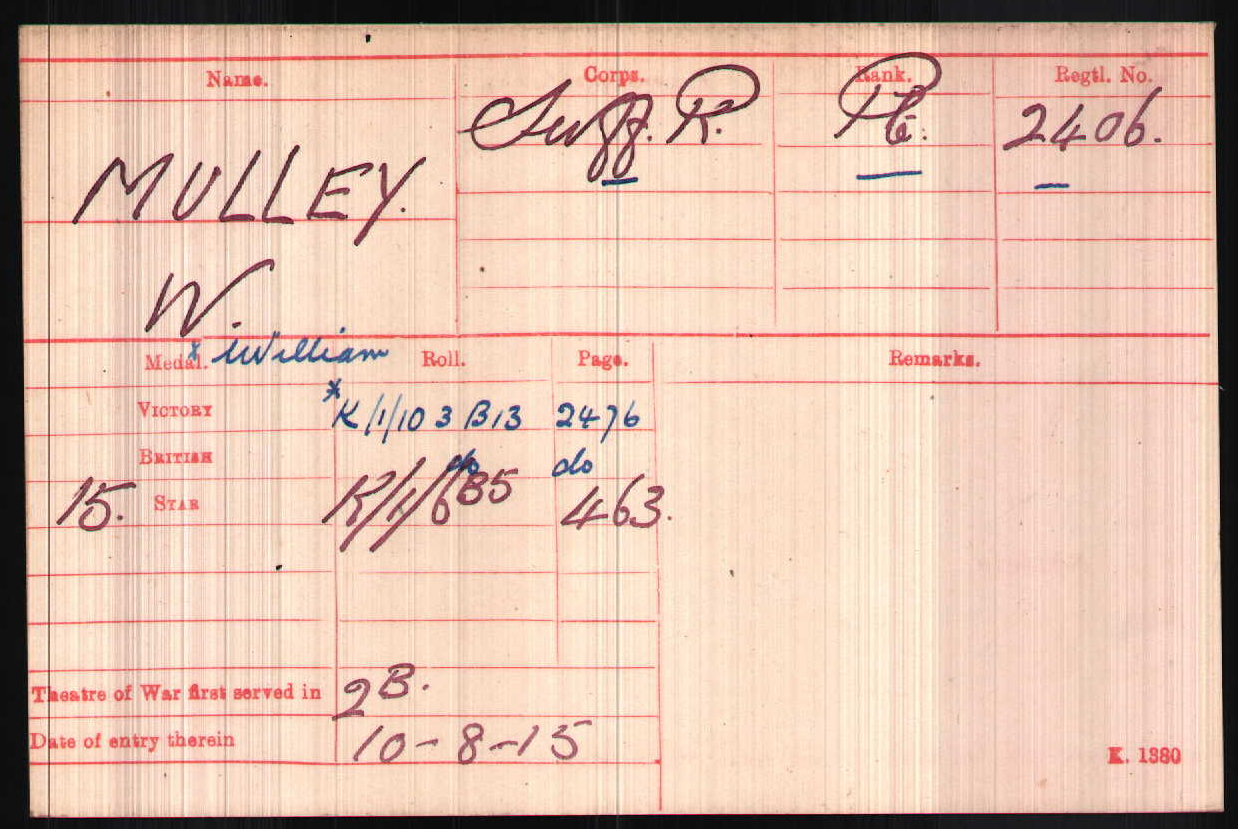 Name. Corps. Rank. Regtl. No.
MULLEY. Suff. R. Pte. 2406.
W.
* William
Medal. Roll. Page. Remarks.
VICTORY * K/1/103 B13 2476
BRITISH do do
15. STAR K/1/6B5 463.
Theatre of War first served in 2B.
Date of entry therein 10-8-15
K. 1380